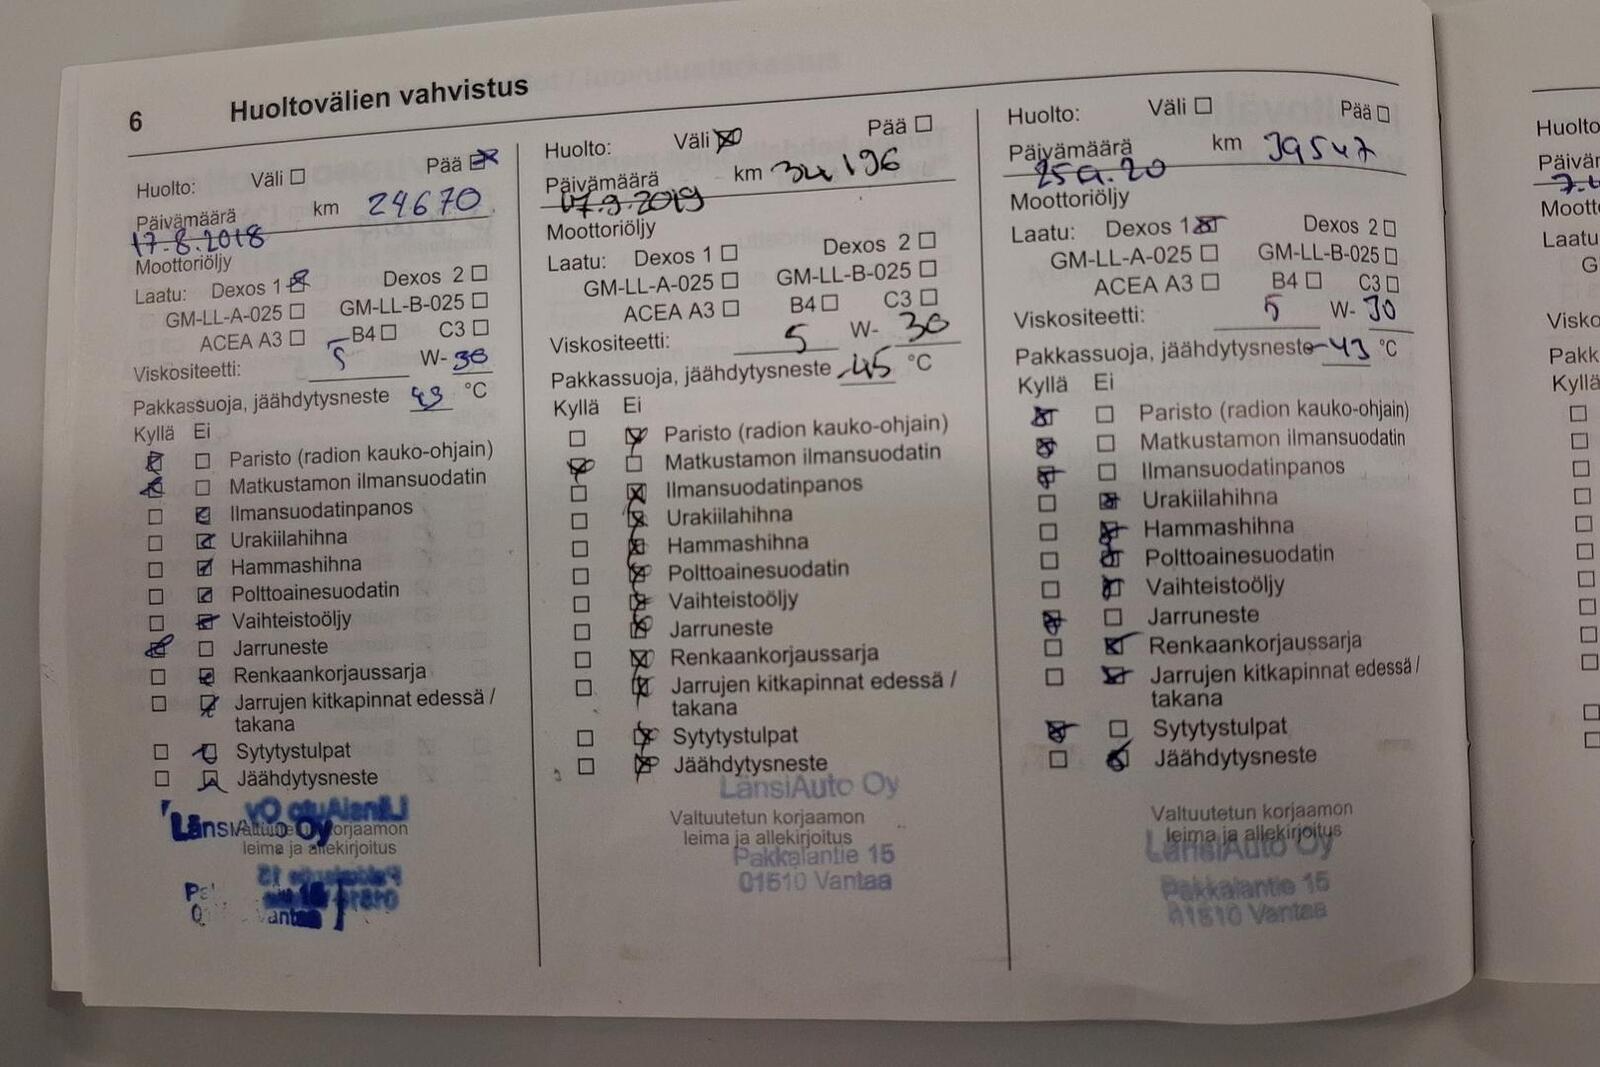 6 Huoltovälien vahvistus
Huolto: Väli Pää
Päivämäärä km 24670
17.8.2018
Moottoriöljy
Laatu: Dexos 1 Dexos 2
GM-LL-A-025 GM-LL-B-025
ACEA A3 B4 C3
Viskositeetti: 5 W- 30
Pakkassuoja, jäähdytysneste 43 °C
Kyllä Ei
Paristo (radion kauko-ohjain)
Matkustamon ilmansuodatin
Ilmansuodatinpanos
Urakiilahihna
Hammashihna
Polttoainesuodatin
Vaihteistoöljy
Jarruneste
Renkaankorjaussarja
Jarrujen kitkapinnat edessä /
takana
Sytytystulpat
Jäähdytysneste
LänsiAuto Oy
korjaamon
leima ja allekirjoitus
Vantaa
Huolto: Väli Pää
Päivämäärä km 34196
17.9.2019
Moottoriöljy
Laatu: Dexos 1 Dexos 2
GM-LL-A-025 GM-LL-B-025
ACEA A3 B4 C3
Viskositeetti: 5 W- 30
Pakkassuoja, jäähdytysneste -45 °C
Kyllä Ei
Paristo (radion kauko-ohjain)
Matkustamon ilmansuodatin
Ilmansuodatinpanos
Urakiilahihna
Hammashihna
Polttoainesuodatin
Vaihteistoöljy
Jarruneste
Renkaankorjaussarja
Jarrujen kitkapinnat edessä /
takana
Sytytystulpat
Jäähdytysneste
LänsiAuto Oy
Valtuutetun korjaamon
leima ja allekirjoitus
Pakkalantie 15
01510 Vantaa
Huolto: Väli Pää
Päivämäärä km 39547
25.9.20
Moottoriöljy
Laatu: Dexos 1 Dexos 2
GM-LL-A-025 GM-LL-B-025
ACEA A3 B4 C3
Viskositeetti: 5 W- 30
Pakkassuoja, jäähdytysneste -43 °C
Kyllä Ei
Paristo (radion kauko-ohjain)
Matkustamon ilmansuodatin
Ilmansuodatinpanos
Urakiilahihna
Hammashihna
Polttoainesuodatin
Vaihteistoöljy
Jarruneste
Renkaankorjaussarja
Jarrujen kitkapinnat edessä /
takana
Sytytystulpat
Jäähdytysneste
Valtuutetun korjaamon
leima ja allekirjoitus
LänsiAuto Oy
Pakkalantie 15
01510 Vantaa
Huolto
Laatu:
Kyllä